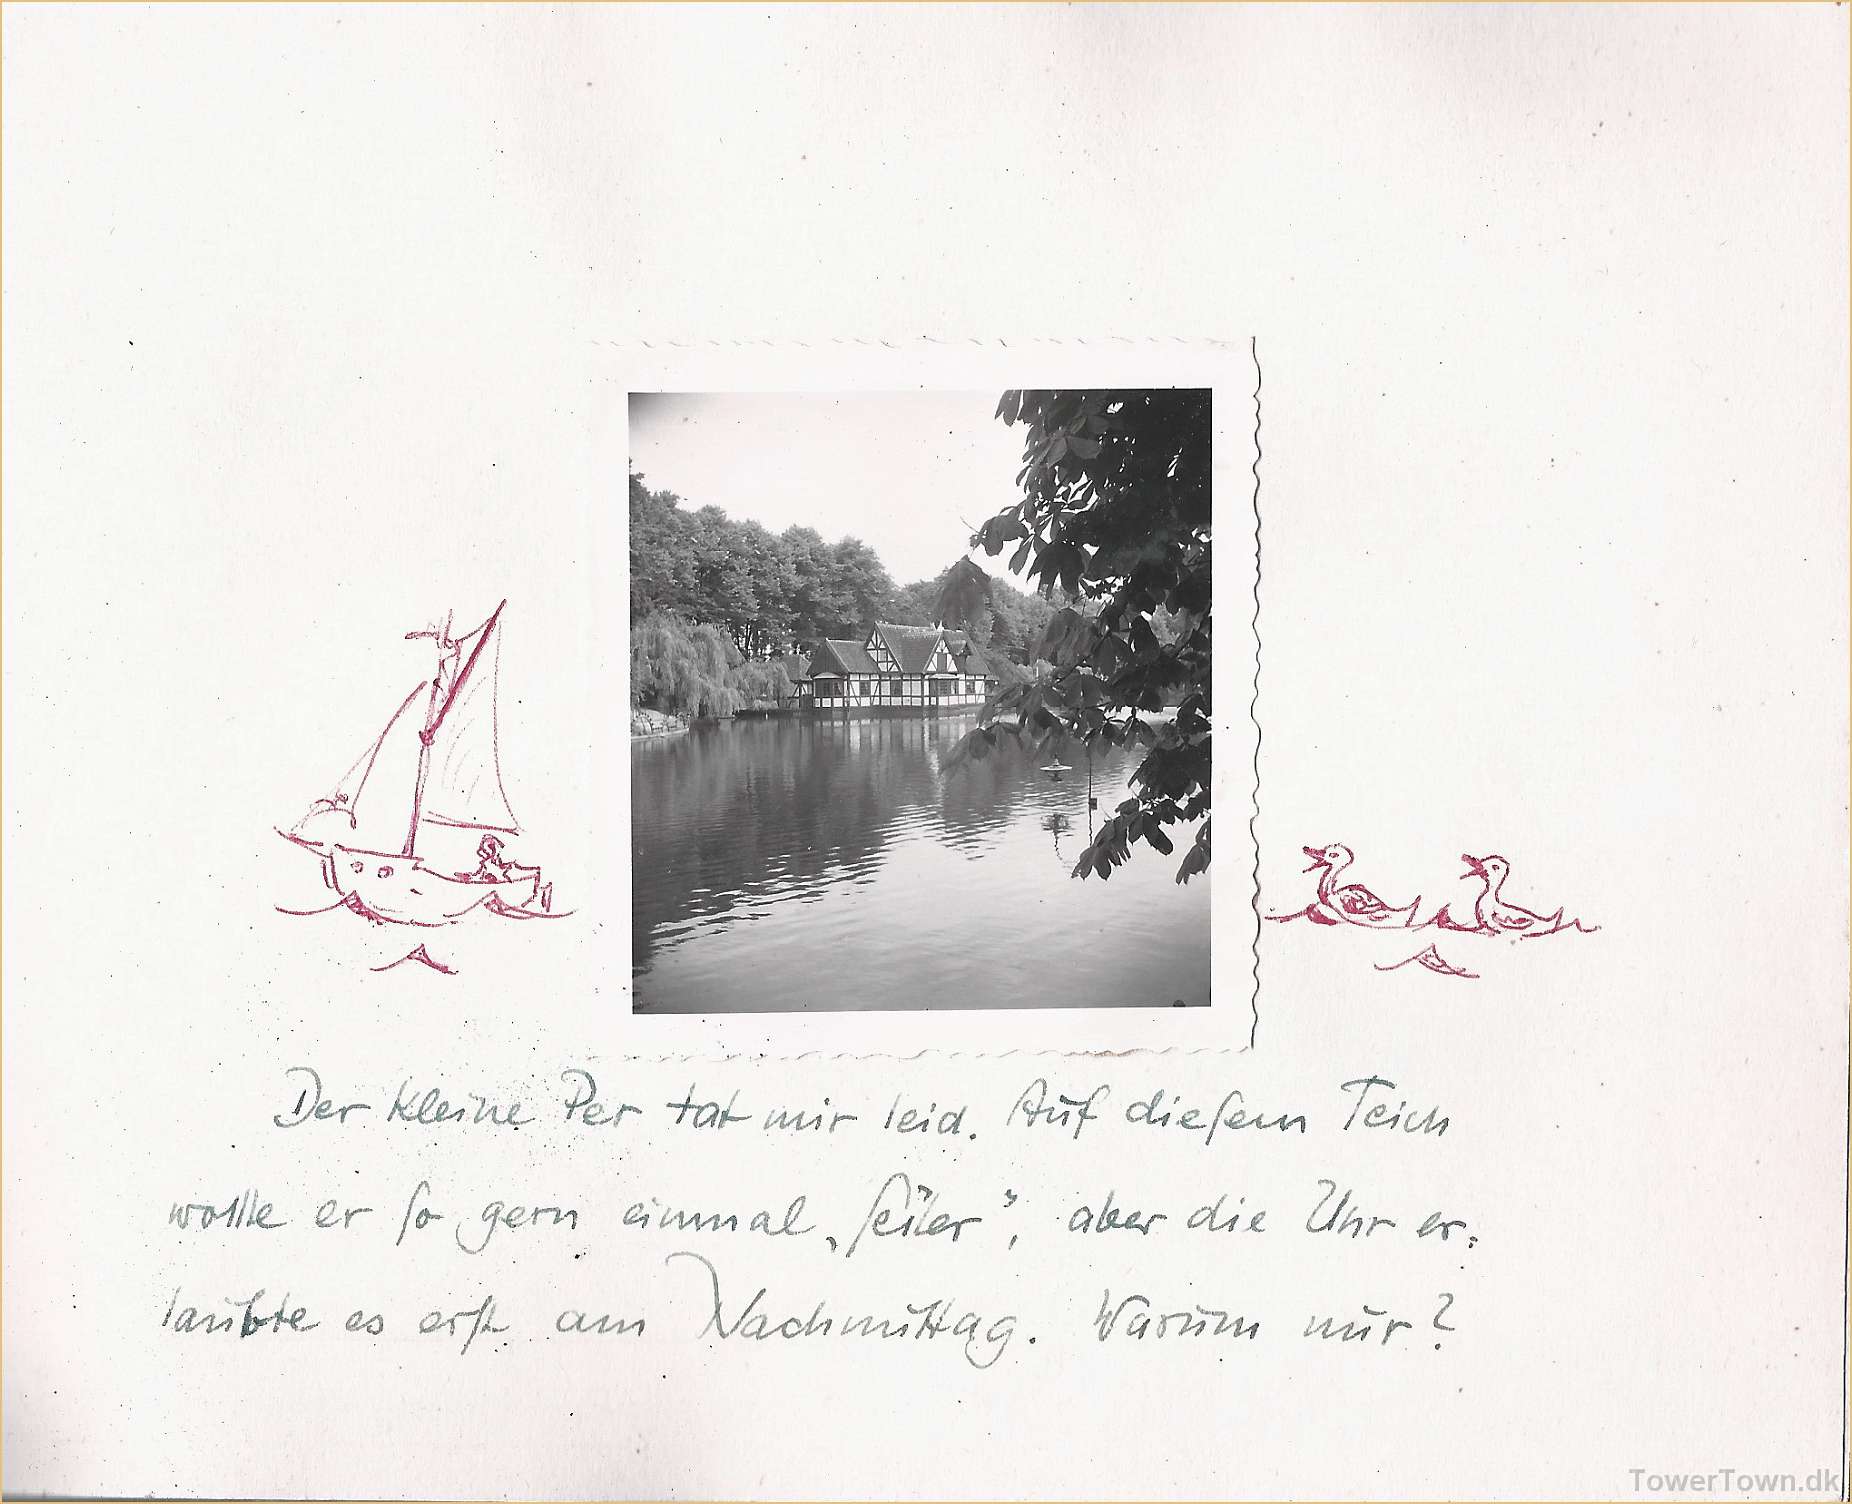 Der kleine Per tat mir leid. Auf diesem Teich
wollte er so gern einmal „seiler“, aber die Uhr er-
laubte es erst am Nachmittag. Warum nur?
TowerTown.dk